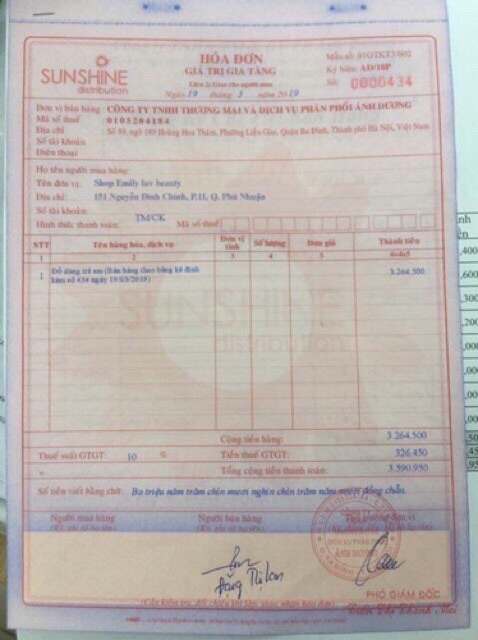 SUNSHINE
distribution
HÓA ĐƠN
GIÁ TRỊ GIA TĂNG
Liên 2: Giao cho người mua
Ngày 19 tháng 3 năm 2019
Mẫu số: 01GTKT3/002
Ký hiệu: AD/18P
Số: 0000434
Đơn vị bán hàng: CÔNG TY TNHH THƯƠNG MẠI VÀ DỊCH VỤ PHÂN PHỐI ÁNH DƯƠNG
Mã số thuế: 0105204184
Địa chỉ: Số 89, ngõ 189 Hoàng Hoa Thám, Phường Liễu Giai, Quận Ba Đình, Thành phố Hà Nội, Việt Nam
Số tài khoản:
Điện thoại:
Họ tên người mua hàng:
Tên đơn vị: Shop Emily luv beauty
Địa chỉ: 151 Nguyễn Đình Chính, P.11, Q. Phú Nhuận
Số tài khoản:
Hình thức thanh toán: TM/CK Mã số thuế:
STT Tên hàng hóa, dịch vụ Đơn vị tính Số lượng Đơn giá Thành tiền
1 2 3 4 5 6=4x5
1 Đồ dùng trẻ em (bán hàng theo bảng kê đính 3.264.500
kèm số 434 ngày 19/03/2019)
SUNSHINE
distribution
Cộng tiền hàng: 3.264.500
Thuế suất GTGT: 10 % Tiền thuế GTGT: 326.450
Tổng cộng tiền thanh toán: 3.590.950
Số tiền viết bằng chữ: Ba triệu năm trăm chín mươi nghìn chín trăm năm mươi đồng chẵn.
Người mua hàng Người bán hàng Thủ trưởng đơn vị
(Ký, ghi rõ họ tên) (Ký, ghi rõ họ tên)
ÁNH DƯƠNG
Đặng Thị Lan
PHÓ GIÁM ĐỐC
(Cần kiểm tra, đối chiếu khi lập, giao, nhận hóa đơn)